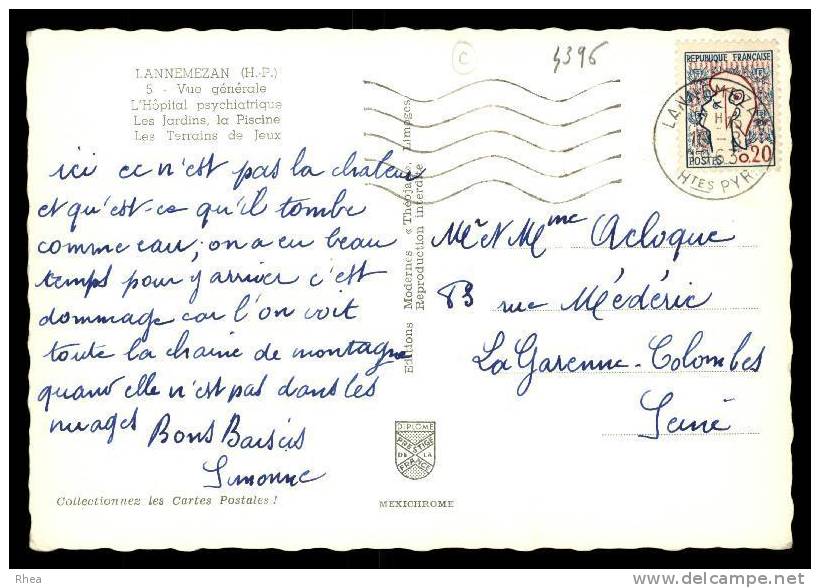 LANNEMEZAN (H.-P.)
5 - Vue générale
L'Hôpital psychiatrique
Les Jardins, la Piscine
Les Terrains de Jeux
C
4396
REPUBLIQUE FRANÇAISE
POSTES 0.20
LANNEMEZAN
HTES PYR.
ici ce n'est pas la chaleur
et qu'est-ce qu'il tombe
comme eau ; on a eu beau
temps pour y arriver c'est
dommage car l'on voit
toute la chaine de montagne
quand elle n'est pas dans les
nuages Bons Baisers
Simonne
Editions Modernes « Théojac », Limoges
Reproduction interdite
Mr et Mme Acloque
83 rue Médéric
La Garenne-Colombes
Seine
DIPLOME
PRESTIGE
DE LA
FRANCE
Collectionnez les Cartes Postales !
MEXICHROME
Rhea
http://rhea.delcampe.net